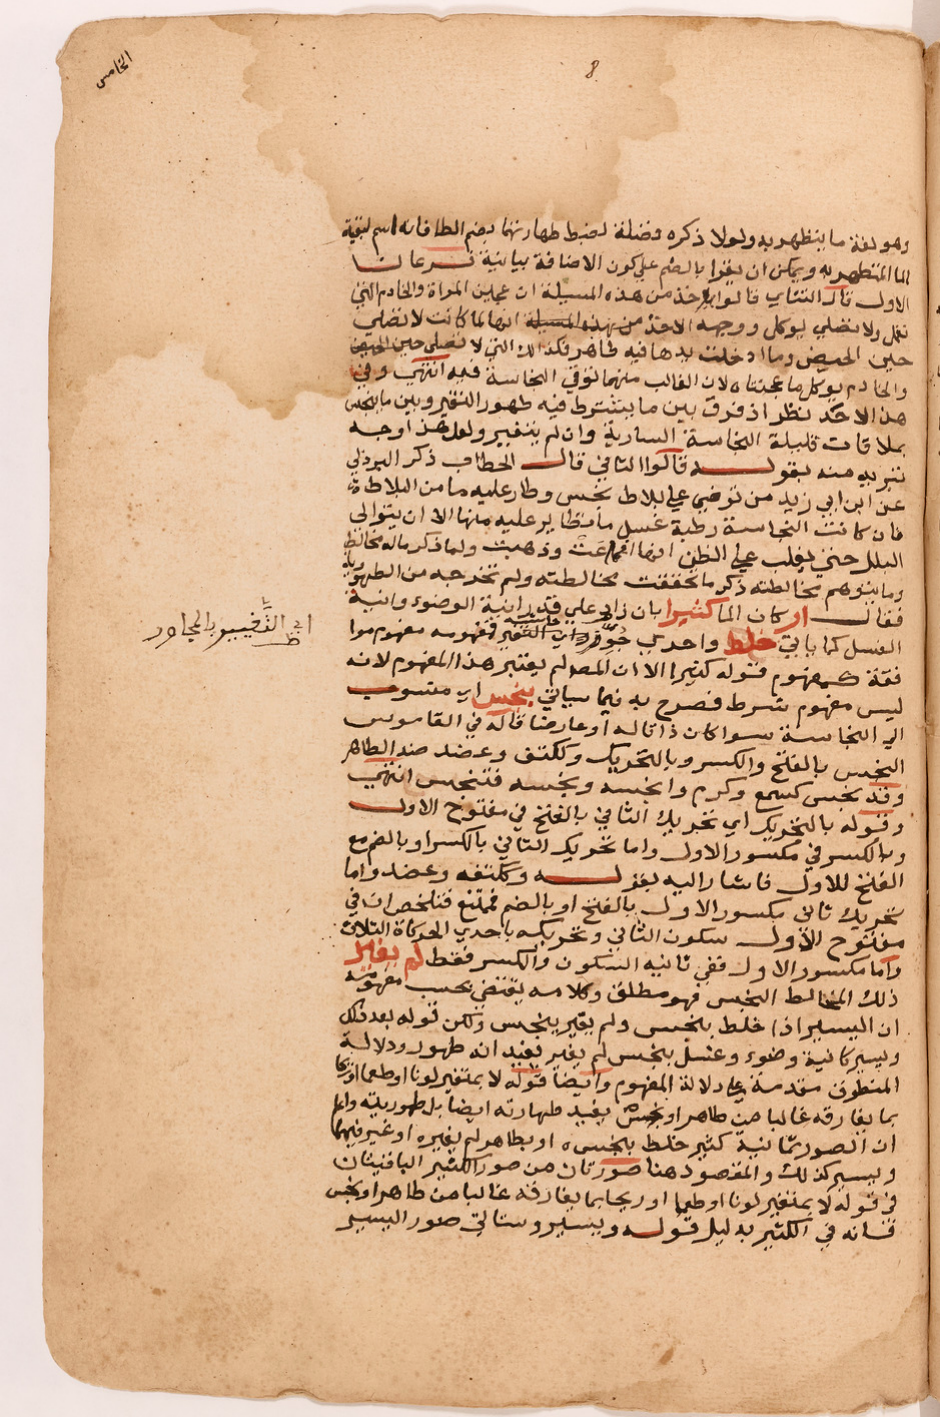 الخامس
8
وهو لغة ما يتطهر به ولولا ذكره وفضلة لضبط طهارتهما بضم الطا فانه اسم لبقية
الما المتطهر به ويمكن ان يقرا بالضم علي كون الاضافة بيانية فرعان
الاول قال التتاي قالوا يوخذ من هذه المسيلة ان عجين المراة والخادم التي
تعمل ولا تصلي يوكل ووجه الاخذ من هذه المسيلة انها لما كانت لا تصلي
حين الحيض وما ادخلت يدها فيه طاهر فكذلك التي لا تصلي حين الحيض
والخادم يوكل ما عجنتاه لان الغالب منهما توقي النجاسة فيه انتهي وفي
هذا الاخذ نظر اذ فرق بين ما يشترط فيه ظهور التغير وبين ما ينجس
بملاقات قليلة النجاسة السارية وان لم يتغير ولعل هذا وجه
تبريه منه بقوله قالوا الثاني قال الحطاب ذكر البرزلي
عن ابن ابي زيد من توضي علي بلاط نجس وطار عليه ما من البلاط
فان كانت النجاسة رطبة غسل ما تطاير عليه منها الا ان يتوالي
البلل حتي يغلب علي الظن انها وذهبت ولما ذكر ما له مخالط
وما يتوهم مخالطته ذكر ما تحققت مخالطته ولم تخرجه من الطهورية
فقال او كان الما كثيرا بان زاد علي قدر انية الوضوء وانية
الغسل كما ياتي خلط واحدي التغير مفهومه مفهوم موا
فقة كمفهوم قوله كثيرا الا ان المص لم يعتبر هذا المفهوم لانه
ليس مفهوم شرط فصرح به فيما سياتي بنجس اي منسوب
الي النجاسة سوا كان ذاتا له او عارضا قاله في القاموس
النجس بالفتح والكسر وبالتحريك وككتف وعضد ضد الطاهر
وقد نجس كسمع وكرم وانجسه ونجسه فتنجس انتهي
وقوله بالتحريك اي تحريك الثاني بالفتح في مفتوح الاول
وبالكسر في مكسور الاول واما تحريك الثاني بالكسر او بالضم مع
الفتح للاول فاشار اليه بقوله وككتف وعضد واما
تحريك ثاني مكسور الاول بالفتح او بالضم فممتنع فتلخص ان في
مفتوح الاول سكون الثاني وتحريكه باحدي الحركات الثلاث
واما مكسور الاول ففي ثانيه السكون والكسر فقط لم يغير
ذلك المخالط النجس فهو مطلق وكلامه يقتضي بحسب مفهومه
ان اليسير اذا خلط بنجس ولم يغير ينجس ولكن قوله بعد ذلك
ويسير كانية وضوء وغسل بنجس لم يغير يفيد انه طهور ودلالة
المنطوق مقدمة علي دلالة المفهوم وايضا قوله لا بمتغير لونا او طعما او ريحا
بما يفارقه غالبا من طاهر او نجس يفيد طهارته ايضا بل طهوريته واعلم
ان الصور ثمانية كثير خلط بنجس او بطاهر لم يغيره او غير فيهما
ويسير كذلك والمقصود هنا صورتان من صور الكثير الباقيتان
في قوله لا بمتغير لونا او طعما او ريحا بما يفارقه غالبا من طاهر او نجس
فانه في الكثير بدليل قوله ويسير وستاتي صور اليسير
اي التغيير بالمجاور
ط